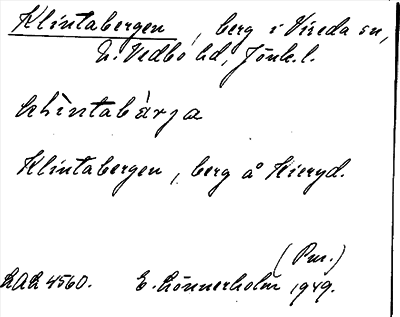 Klintabergen, berg i Vireda sn,
N. Vedbo hd, Jönk. l.
klìntabàrja
Klintabergen, berg å Hieryd.
(Pm.)
LAL 4560. E. Lönnerholm 1949.